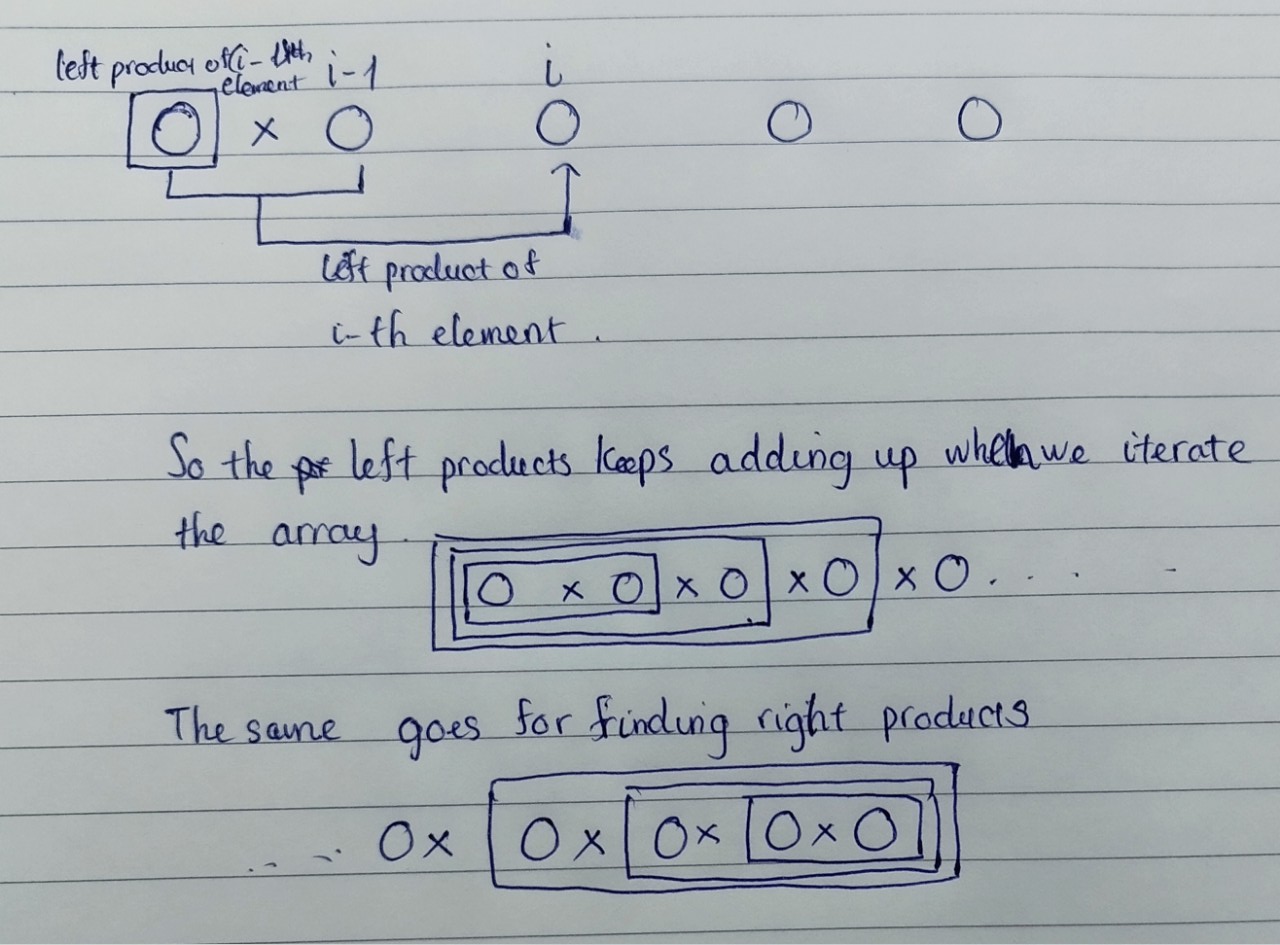 left product of (i-1)th
element
i-1
i
O × O O O O
left product of
i-th element.
So the left products keeps adding up when we iterate
the array.
O × O × O × O × O . . . . -
The same goes for finding right products
. . - .. O × O × O × O × O